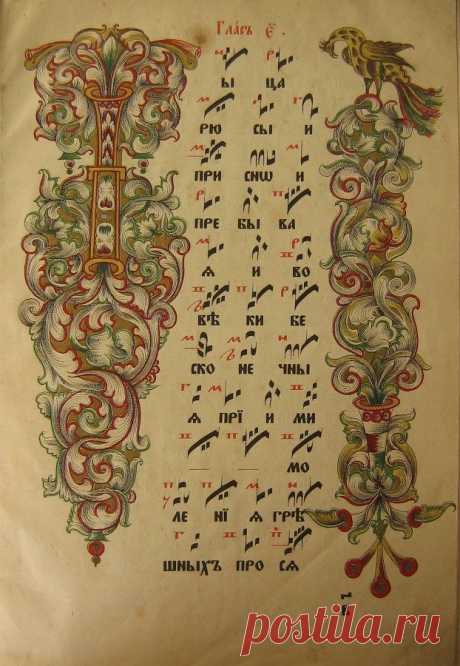 Гла́съ є҃.
ы ца
рю сы и
при снѡ и
пре бы ва
ѧ и во
вѣ ки бе
ско не чны
ѧ прї и ми
мо
ле нї ѧ грѣ
шныхъ про сѧ
postila.ru